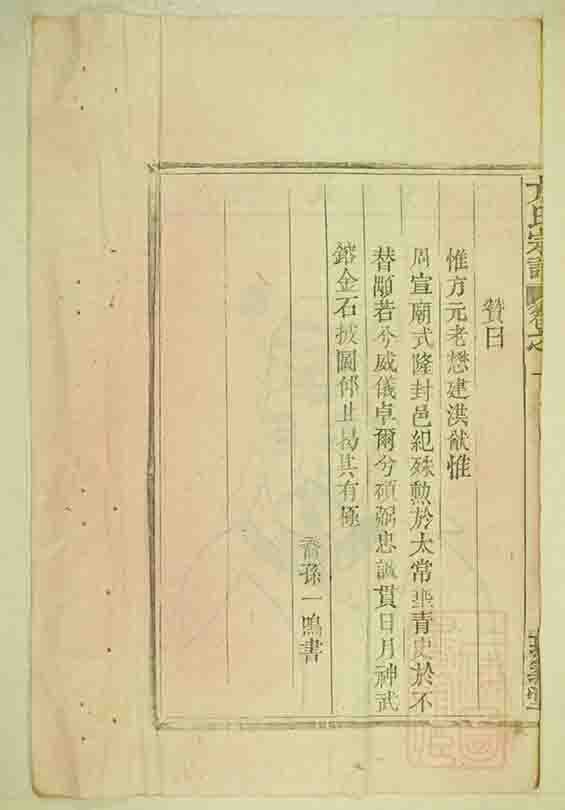 方氏宗譜 卷之一
贊曰
惟方元老懋建洪猷惟
周宣廟式隆封邑紀殊勲於太常垂青史於不
替顒若兮威儀卓爾兮碩弼忠誠貫日月神武
鎔金石披圖仰止曷其有極
裔孫一鳴書